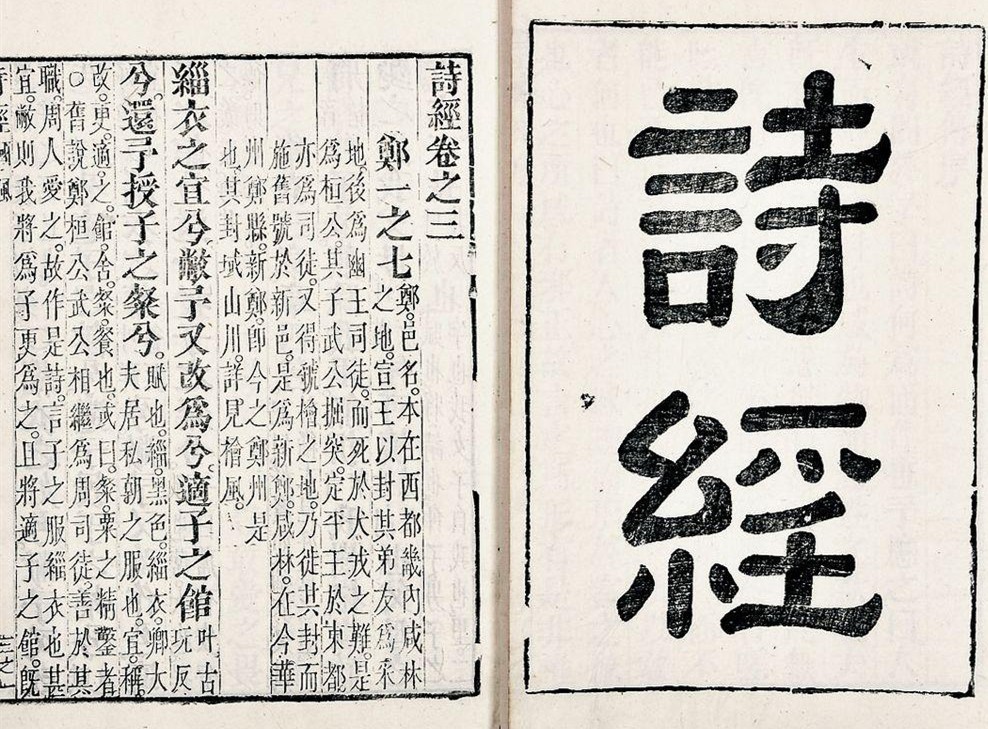 詩經
詩經卷之三
鄭一之七 鄭。邑名。本在西都畿內咸林
之地。宣王以封其弟友爲采
地後爲幽王司徒。而死於犬戎之難。是
爲桓公。其子武公掘突。定平王於東都
亦爲司徒。又得虢檜之地。乃徙其封而
施舊號於新邑。是爲新鄭。咸林。在今華
州鄭縣。新鄭。卽今之鄭州是
也。其封域山川。詳見檜風。
緇衣之宜兮敝予又改爲兮。適子之館 叶古玩反
兮。還予授子之粲兮。賦也。緇。黑色。緇衣。卿大
夫居私朝之服也。宜。稱。
改。更。適。之。館。舍。粲。餐也。或曰。粲。粟之精鑿者
○舊說鄭桓公武公相繼爲周司徒。善於其
職。周人愛之。故作是詩。言子之服緇衣也其
宜。敝則我將爲子更爲之。且將適子之館。旣